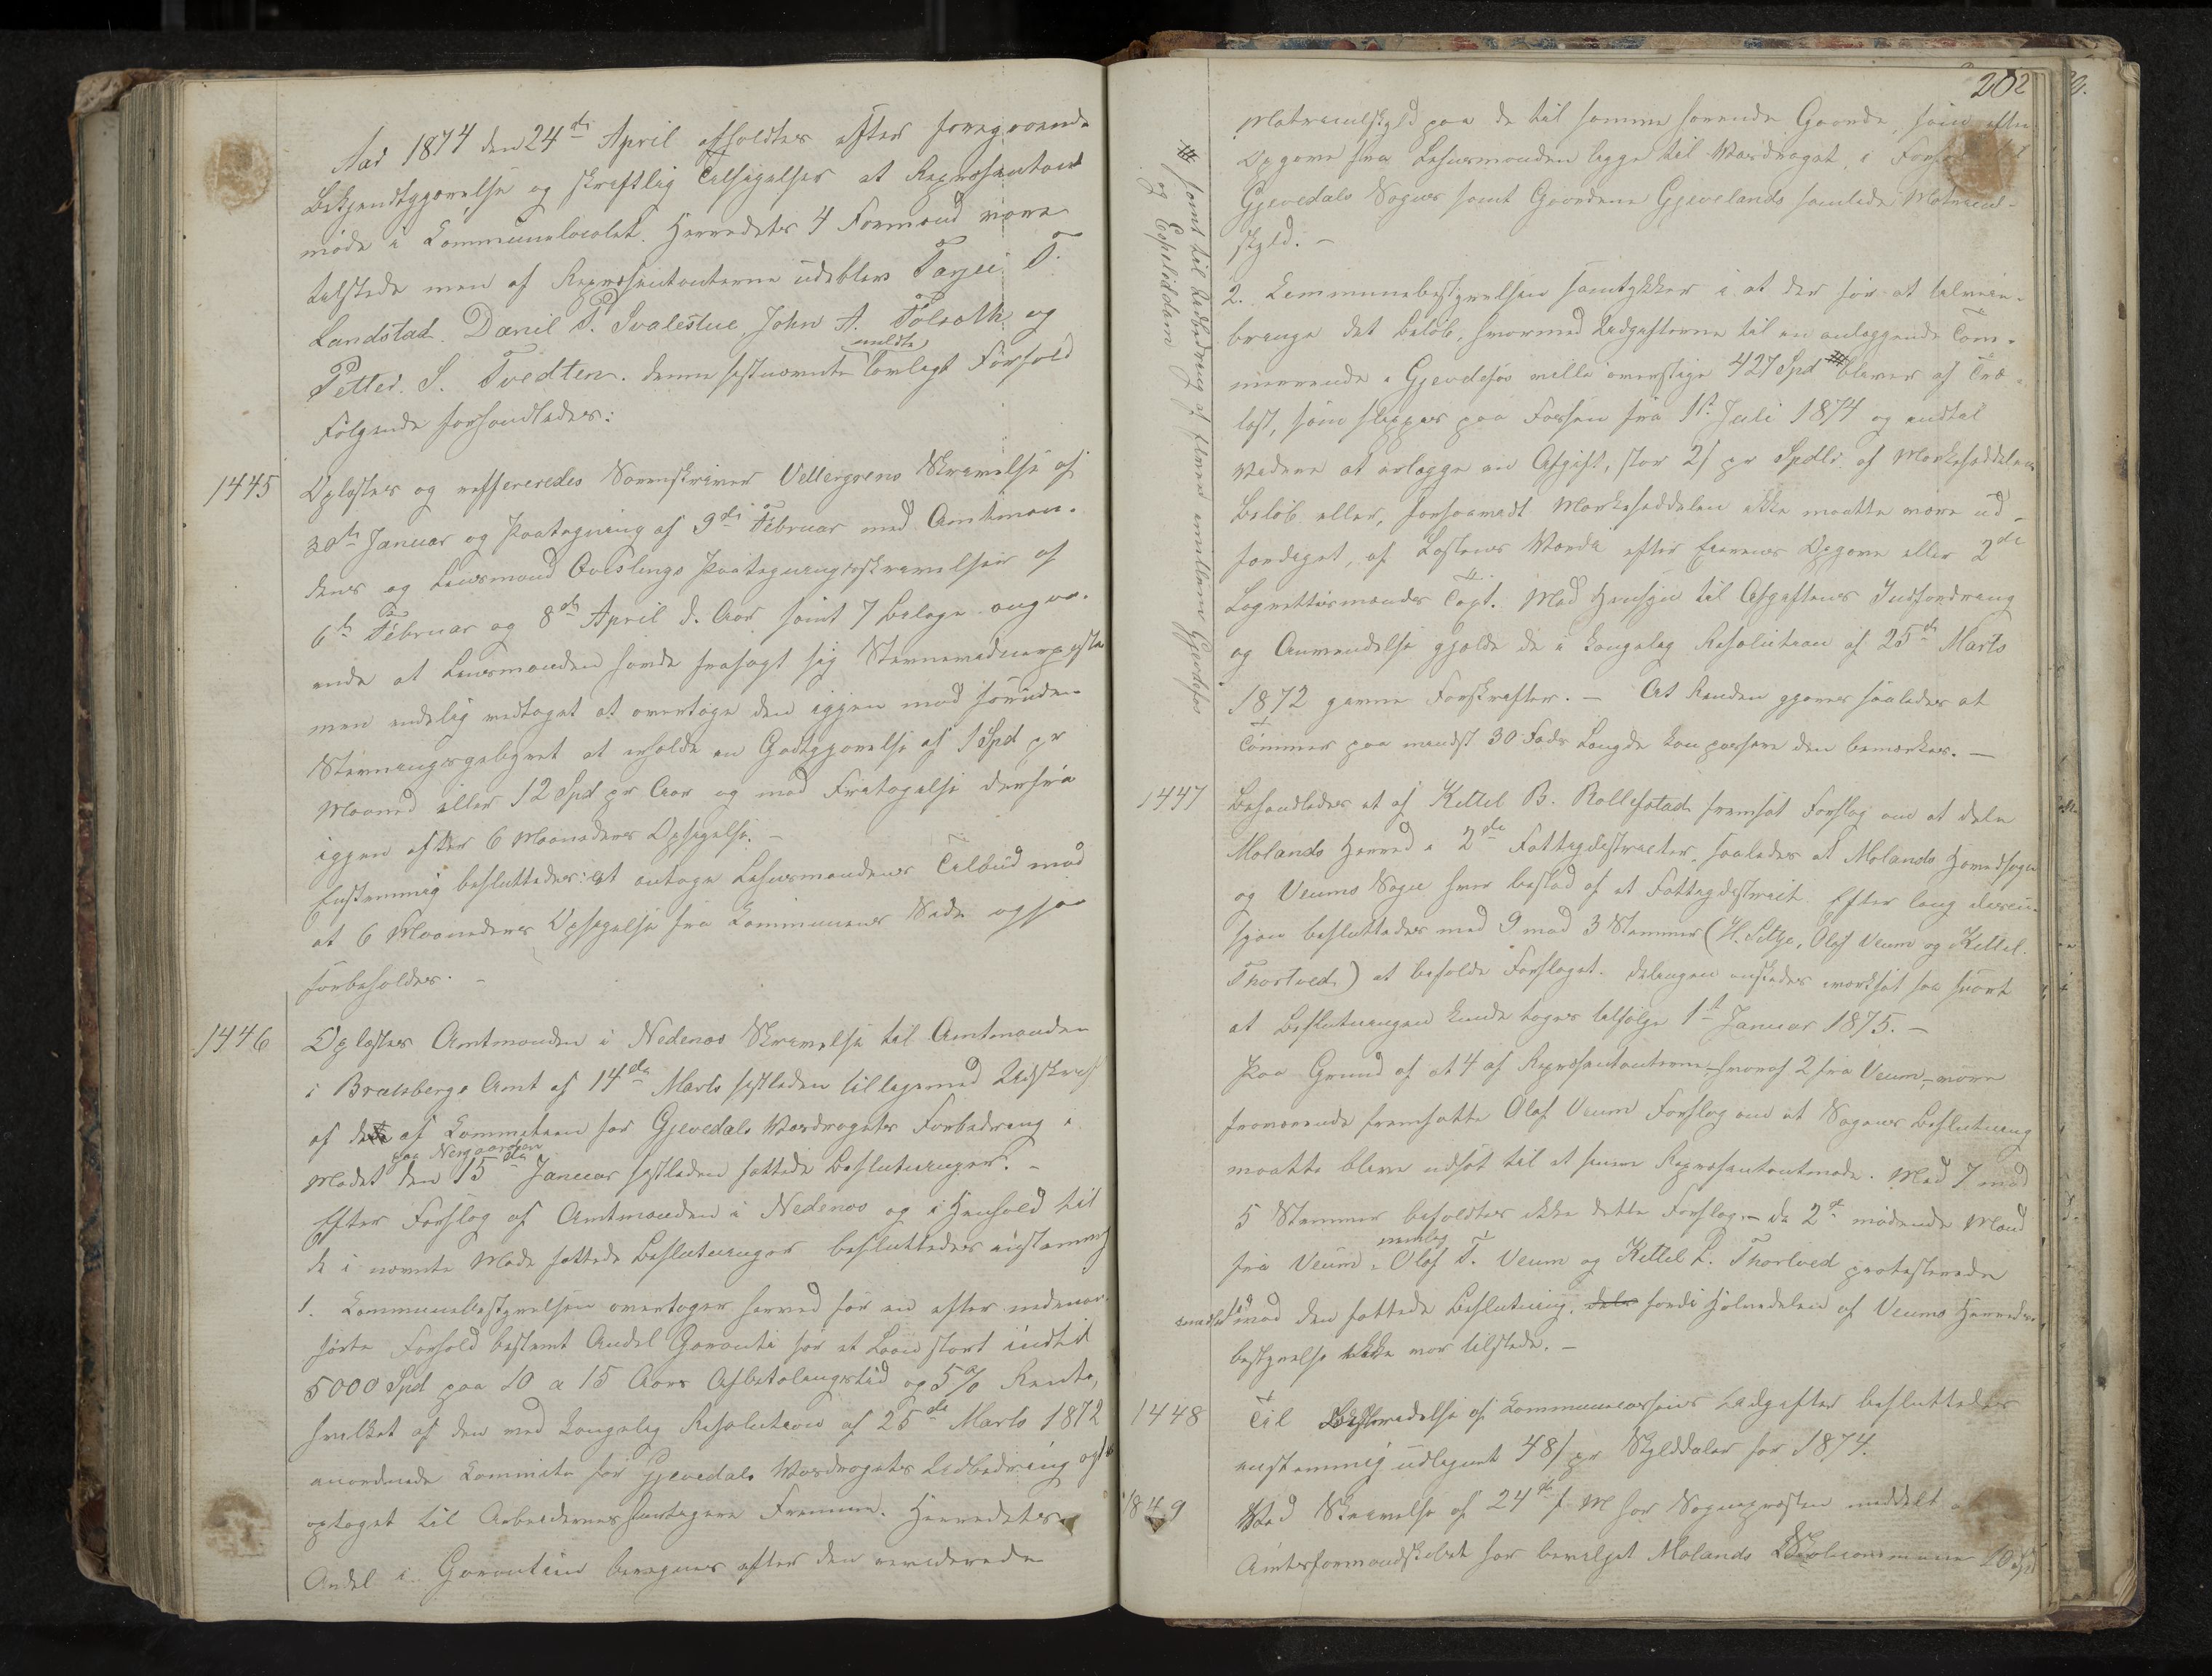 Aar 1874 den 24de April afholdtes efter foregaaende
Bekjendtgjørelse og skriftlig Tilsigelse et Repræsentant
møde i Kommunelocalet. Herredets 4 Formænd vare
tilstede men af Repræsentanterne udeblev Tarjei T.
Landstad. Daniel P. Svalestue, John A. Tolsoth og
Petter S. Tvedten. denne sistnævnte meldte lovligt Forfald
Følgende forhandledes:
1445 Oplæstes og refereredes Sorenskriver Skrivelse af
30te Januar og Paategning af 9de Februar med Amtman-
dens og Lensmand Paategningsskrivelser af
6te Februar og 8de April d. Aar samt 7 Bilage angaa-
ende at Lensmanden havde frasagt sig
men endelig vedtaget at overtage den igjen mod foruden
Stevningsgebyret at erholde en Godtgjørelse af 1 Spd pr
Maaned eller 12 Spd pr Aar og mod Fritagelse derfra
igjen efter 6 Maaneders Opsigelse. –
Enstemmig besluttedes: at antage Lensmandens Tilbud med
at 6 Maaneders Opsigelse fra Kommunens Side ogsaa
forbeholdes. –
1446 Oplæstes Amtmanden i Nedenæs Skrivelse til Amtmanden
i Bratsbergs Amt af 14de Marts sistleden tilligemed Udskrift
af de af Kommiteen for Gjøvedals Vasdragets Forbedring i
Mødet paa Nergaarden den 15de Januar sistleden fattede Beslutninger. –
Efter Forslag af Amtmanden i Nedenæs og i Henhold til
de i nævnte Møde fattede Beslutninger besluttedes enstemmig
1. Kommunebestyrelsen overtager herved for en efter nedenan-
førte Forhold bestemt Andel Garanti for et Laan stort indtil
5000 Spd paa 10 a 15 Aars Afbetalingstid og 5 % Rente,
hvilket af den ved Kongelig Resolution af 25de Marts 1872
anordnede Kommite for Gjøvedals Vasdragets Udbedring
optaget til Arbeidernes Fremme. Herredets
Andel i Garantien beregnes efter den reviderede
202
Matrikulskyld paa de til samme hørende Gaarde, som efter
Opgave fra Lensmanden ligge til Vasdraget, i
Gjøvedals Sogn samt Gaardene Gjevelands samlede Matricul-
skyld. –
# samt til Udbedring af Elven imellem Gjevdefos
og
2. Kommunebestyrelsen samtykker i at der for at tilveie-
bringe det Beløb, hvormed Udgifterne til en anlæggende Tøm-
merrende i Gjevdefos ville overstige 427 Spd # bliver af Træ-
last, som slippes paa Fossen fra 1st Juli 1874 og indtil
videre at erlægge en Afgift, stor 2/ pr Spdlr af Mærkeseddelens
Beløb eller, forsaavidt Mærkeseddelen ikke maatte være ud-
færdiget, af Lastens Værdi efter Eierens Opgave eller 2de
Lagrettesmænds Taxt. Med Hensyn til Afgiftens Indfordring
og Anvendelse gjelde de i Kongelig Resolution af 25de Marts
1872 givne Forskrifter. – At Renden gjøres saaledes at
Tømmer paa mindst 30 Fods Længde kan passere den bemærkes. –
1447 Behandledes et af Kittel B. Rollefstad fremsat Forslag om at dele
Molands Herred i 2de Fattigdistricter, saaledes at Molands Hovedsogn
og Veums Sogn hver bestod af et Fattigdistrict. Efter lang discu-
sjon besluttedes med 9 mod 3 Stemmer (H. Siltje, Olaf Veum og Kittel
Thortved) at bifalde Forslaget. Delingen ønskedes iværksat saa snart
at Beslutningen kunde tages tilfølge 1st Januar 1875. –
Paa Grund af at 4 af Repræsentanterne – hvoraf 2 fra Veum – vare
fraværende fremsatte Olaf Veum Forslag om at Sagens Beslutning
maatte blive udsat til et senere Repræsentantmøde. Med 7 mod
5 Stemmer bifaldtes ikke dette Forslag. – de 2de mødende Mænd
fra Veum, nemlig Olaf T. Veum og Kittel L. Thortved protesterede
imod den fattede Beslutning, fordi Halvdelen af Veums Herreds-
bestyrelse ikke var tilstede. –
1448 Til Bestridelse af Kommunecassens Udgifter besluttedes
enstemmig udlignet 48/ pr Skylddaler for 1874.
1849 Ved Skrivelse af 24de f. M har Sognepræsten meddelt at
Amtsformandskabet har bevilget Molands Skolecommune 10 Spd